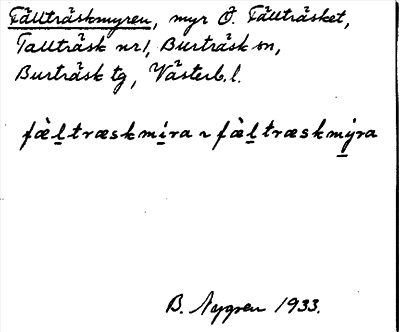 Fällträskmyren, myr Ö. Fällträsket,
Tallträsk nr 1, Burträsk sn,
Burträsk tg, Västerb. l.
fæ̀ḻtræskmi̱ra ~ fæ̀ḻtræskmý̱ra
B. Nygren 1933.